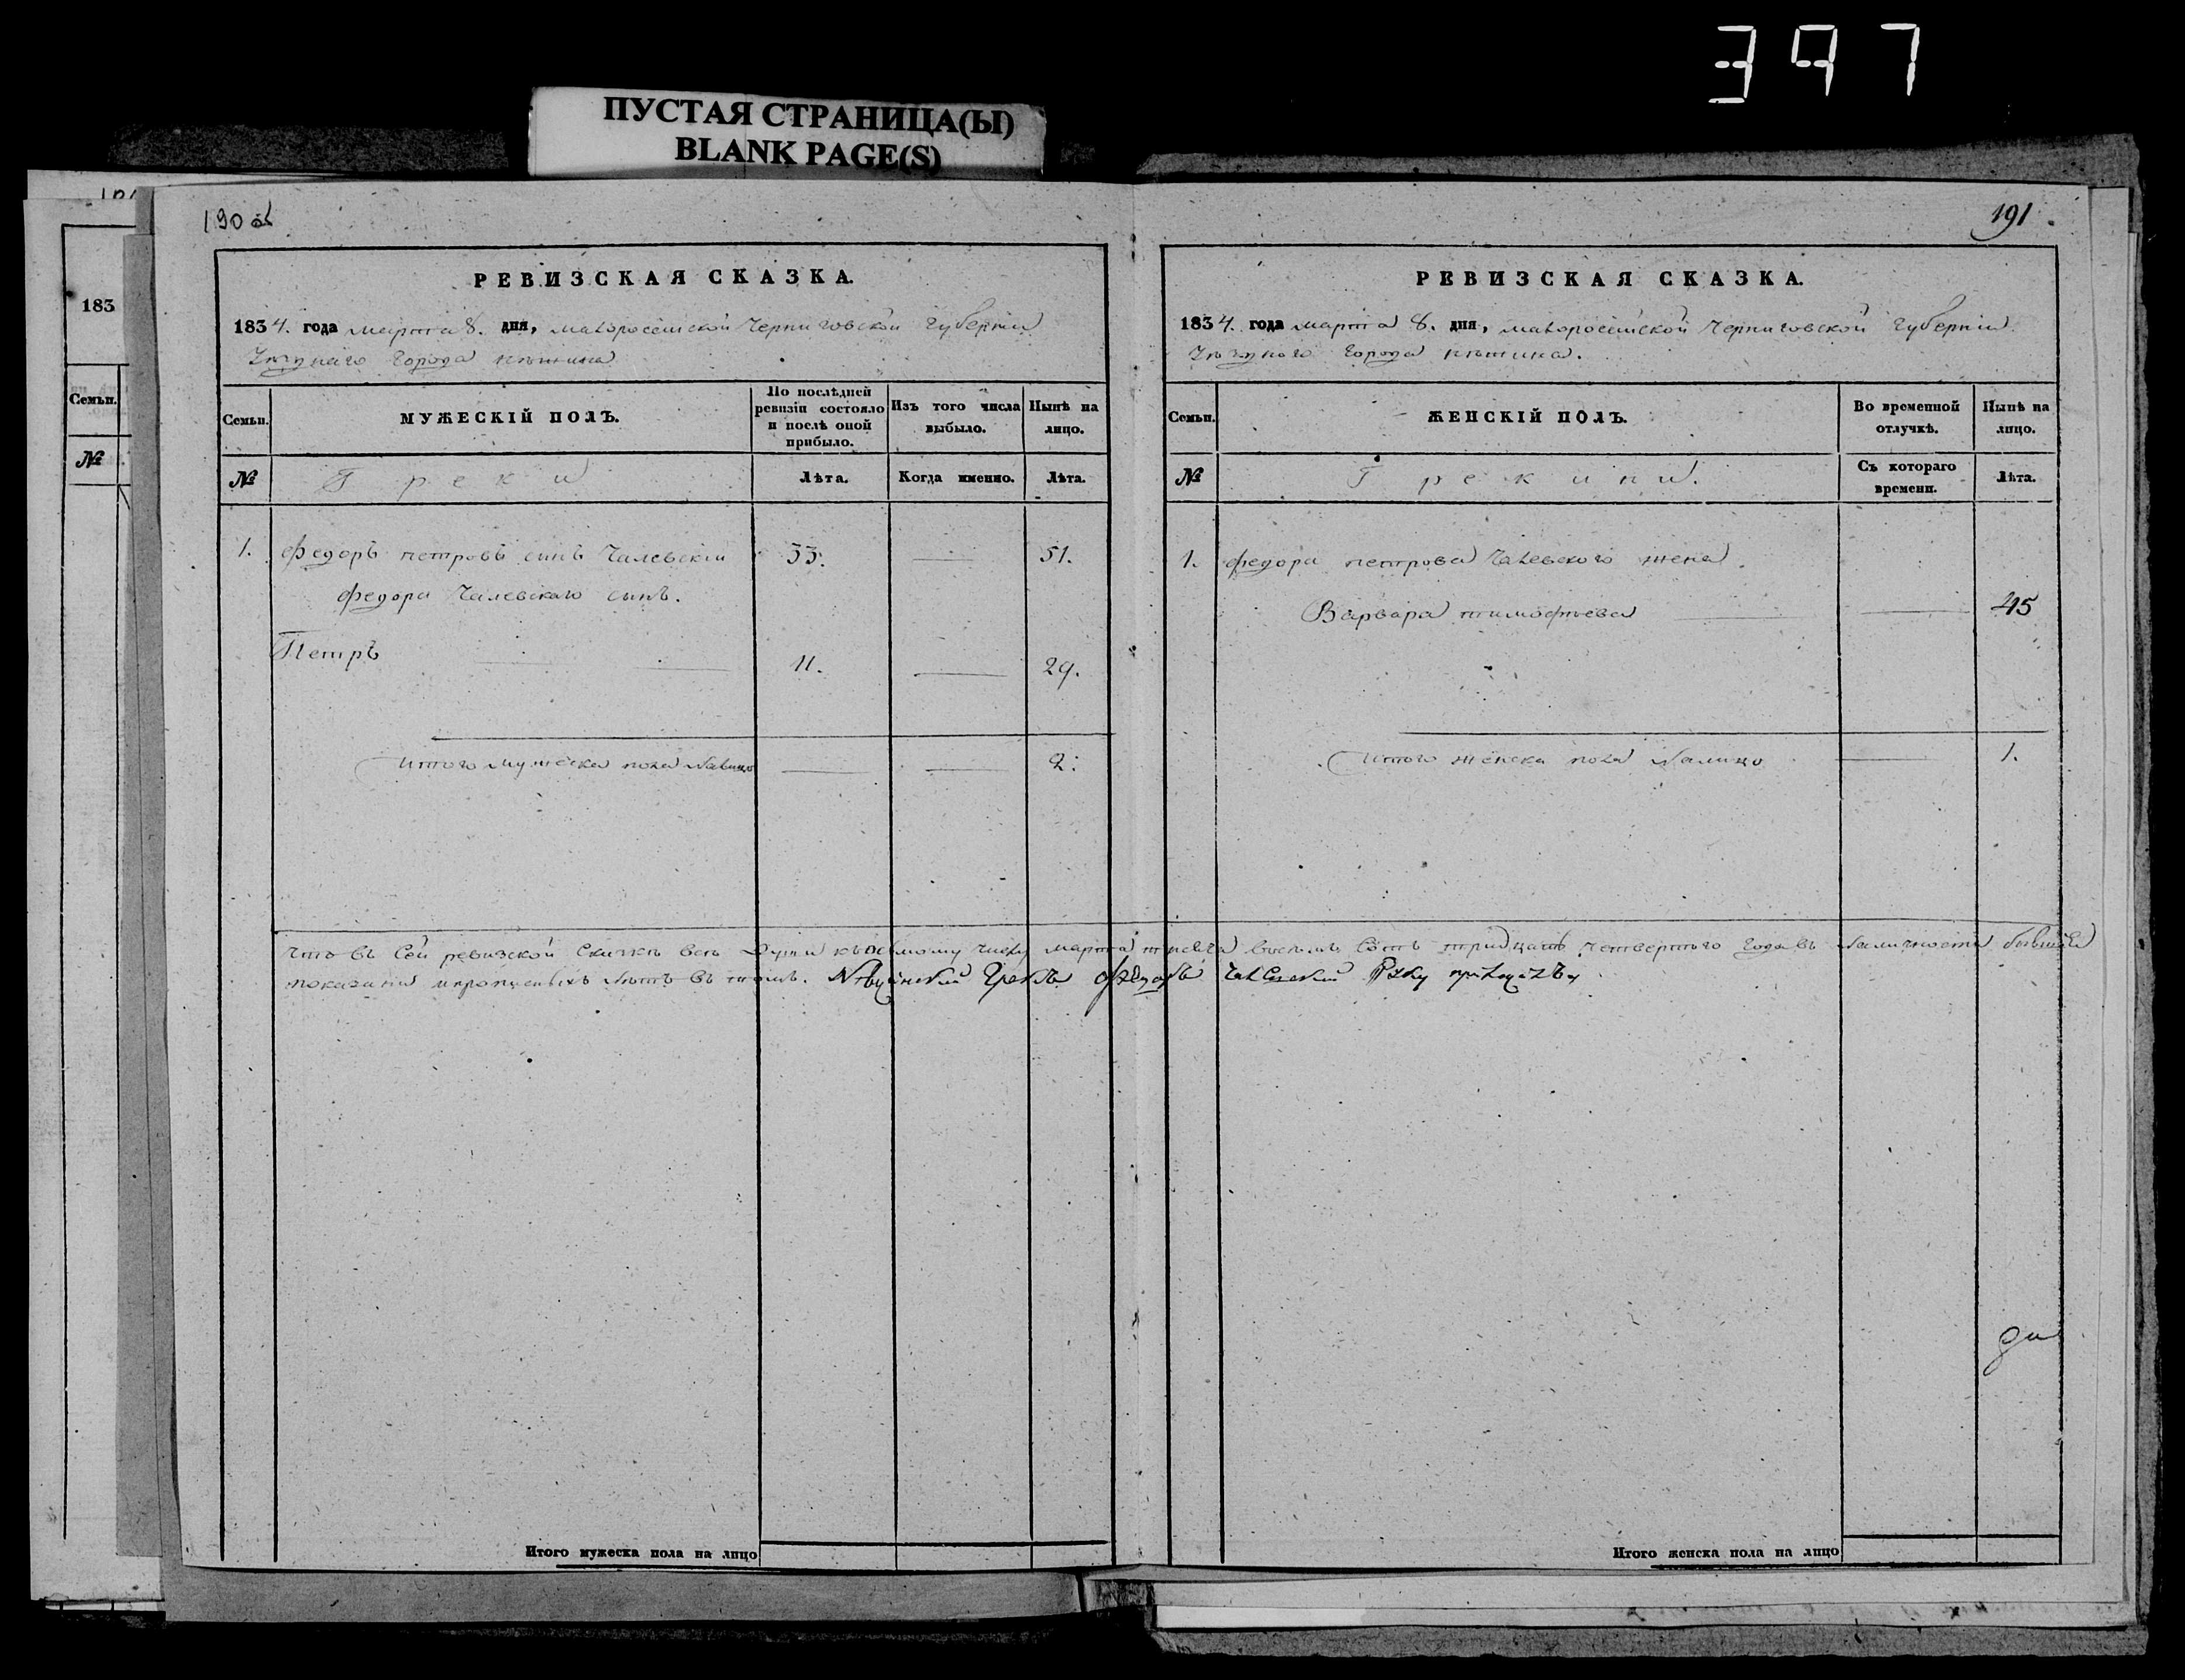 397
ПУСТАЯ СТРАНИЦА(Ы)
BLANK PAGE(S)
183
Семьи.
№
190 об
РЕВИЗСКАЯ СКАЗКА.
1834. года марта 8. дня, малороссійской Черниговской губерніи
Уезднаго города нѣжина
Семьи.
МУЖЕСКІЙ ПОЛЪ.
По послѣдней ревизіи состояло и послѣ оной прибыло.
Изъ того числа выбыло.
Нынѣ на лицо.
№
Греки
Лѣта.
Когда именно.
Лѣта.
1. Федоръ петровъ сынъ Чалевскій 33. 51.
федора Чалевскаго сынъ.
Петръ 11. 29.
Итого мужеска пола налицо 2.
191.
РЕВИЗСКАЯ СКАЗКА.
1834. года марта 8. дня, малороссійской Черниговской губерніи
Уѣзднаго города нѣжина.
Семьи.
ЖЕНСКІЙ ПОЛЪ.
Во временной отлучкѣ.
Нынѣ на лицо.
№
Грекини.
Съ котораго времени.
Лѣта.
1. федора петрова Чалевского жена
Варвара тимофѣева 45
Итого женска пола налицо 1.
что въ сей ревизской Сказкѣ всѣ Души марта тысяча восемь сотъ тридцать четвертого года въ наличности бывшія
показани лѣтъ въ томъ. грекъ Федоръ Чалевский Руку
Итого мужеска пола на лицо
Итого женска пола на лицо